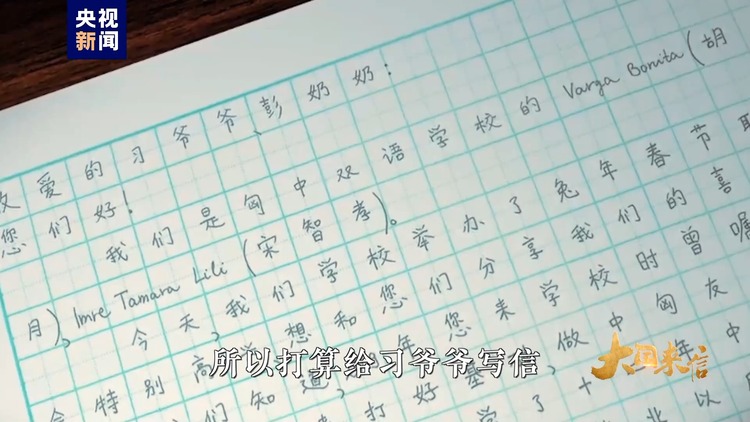 央视
新闻
爱的习爷爷、彭奶奶:
您们好!
我们是匈中双语学校的 Varga Bonita (胡
月), Imre Tamara Lili (宋智孝)。
今天,我们学校举办了兔年春节
特别高 想和您们分享我们的喜
们知道, 年您来学校时曾嘱
打好基 做中匈友
学了十 年中
业以
所以打算给习爷爷写信
大国来言